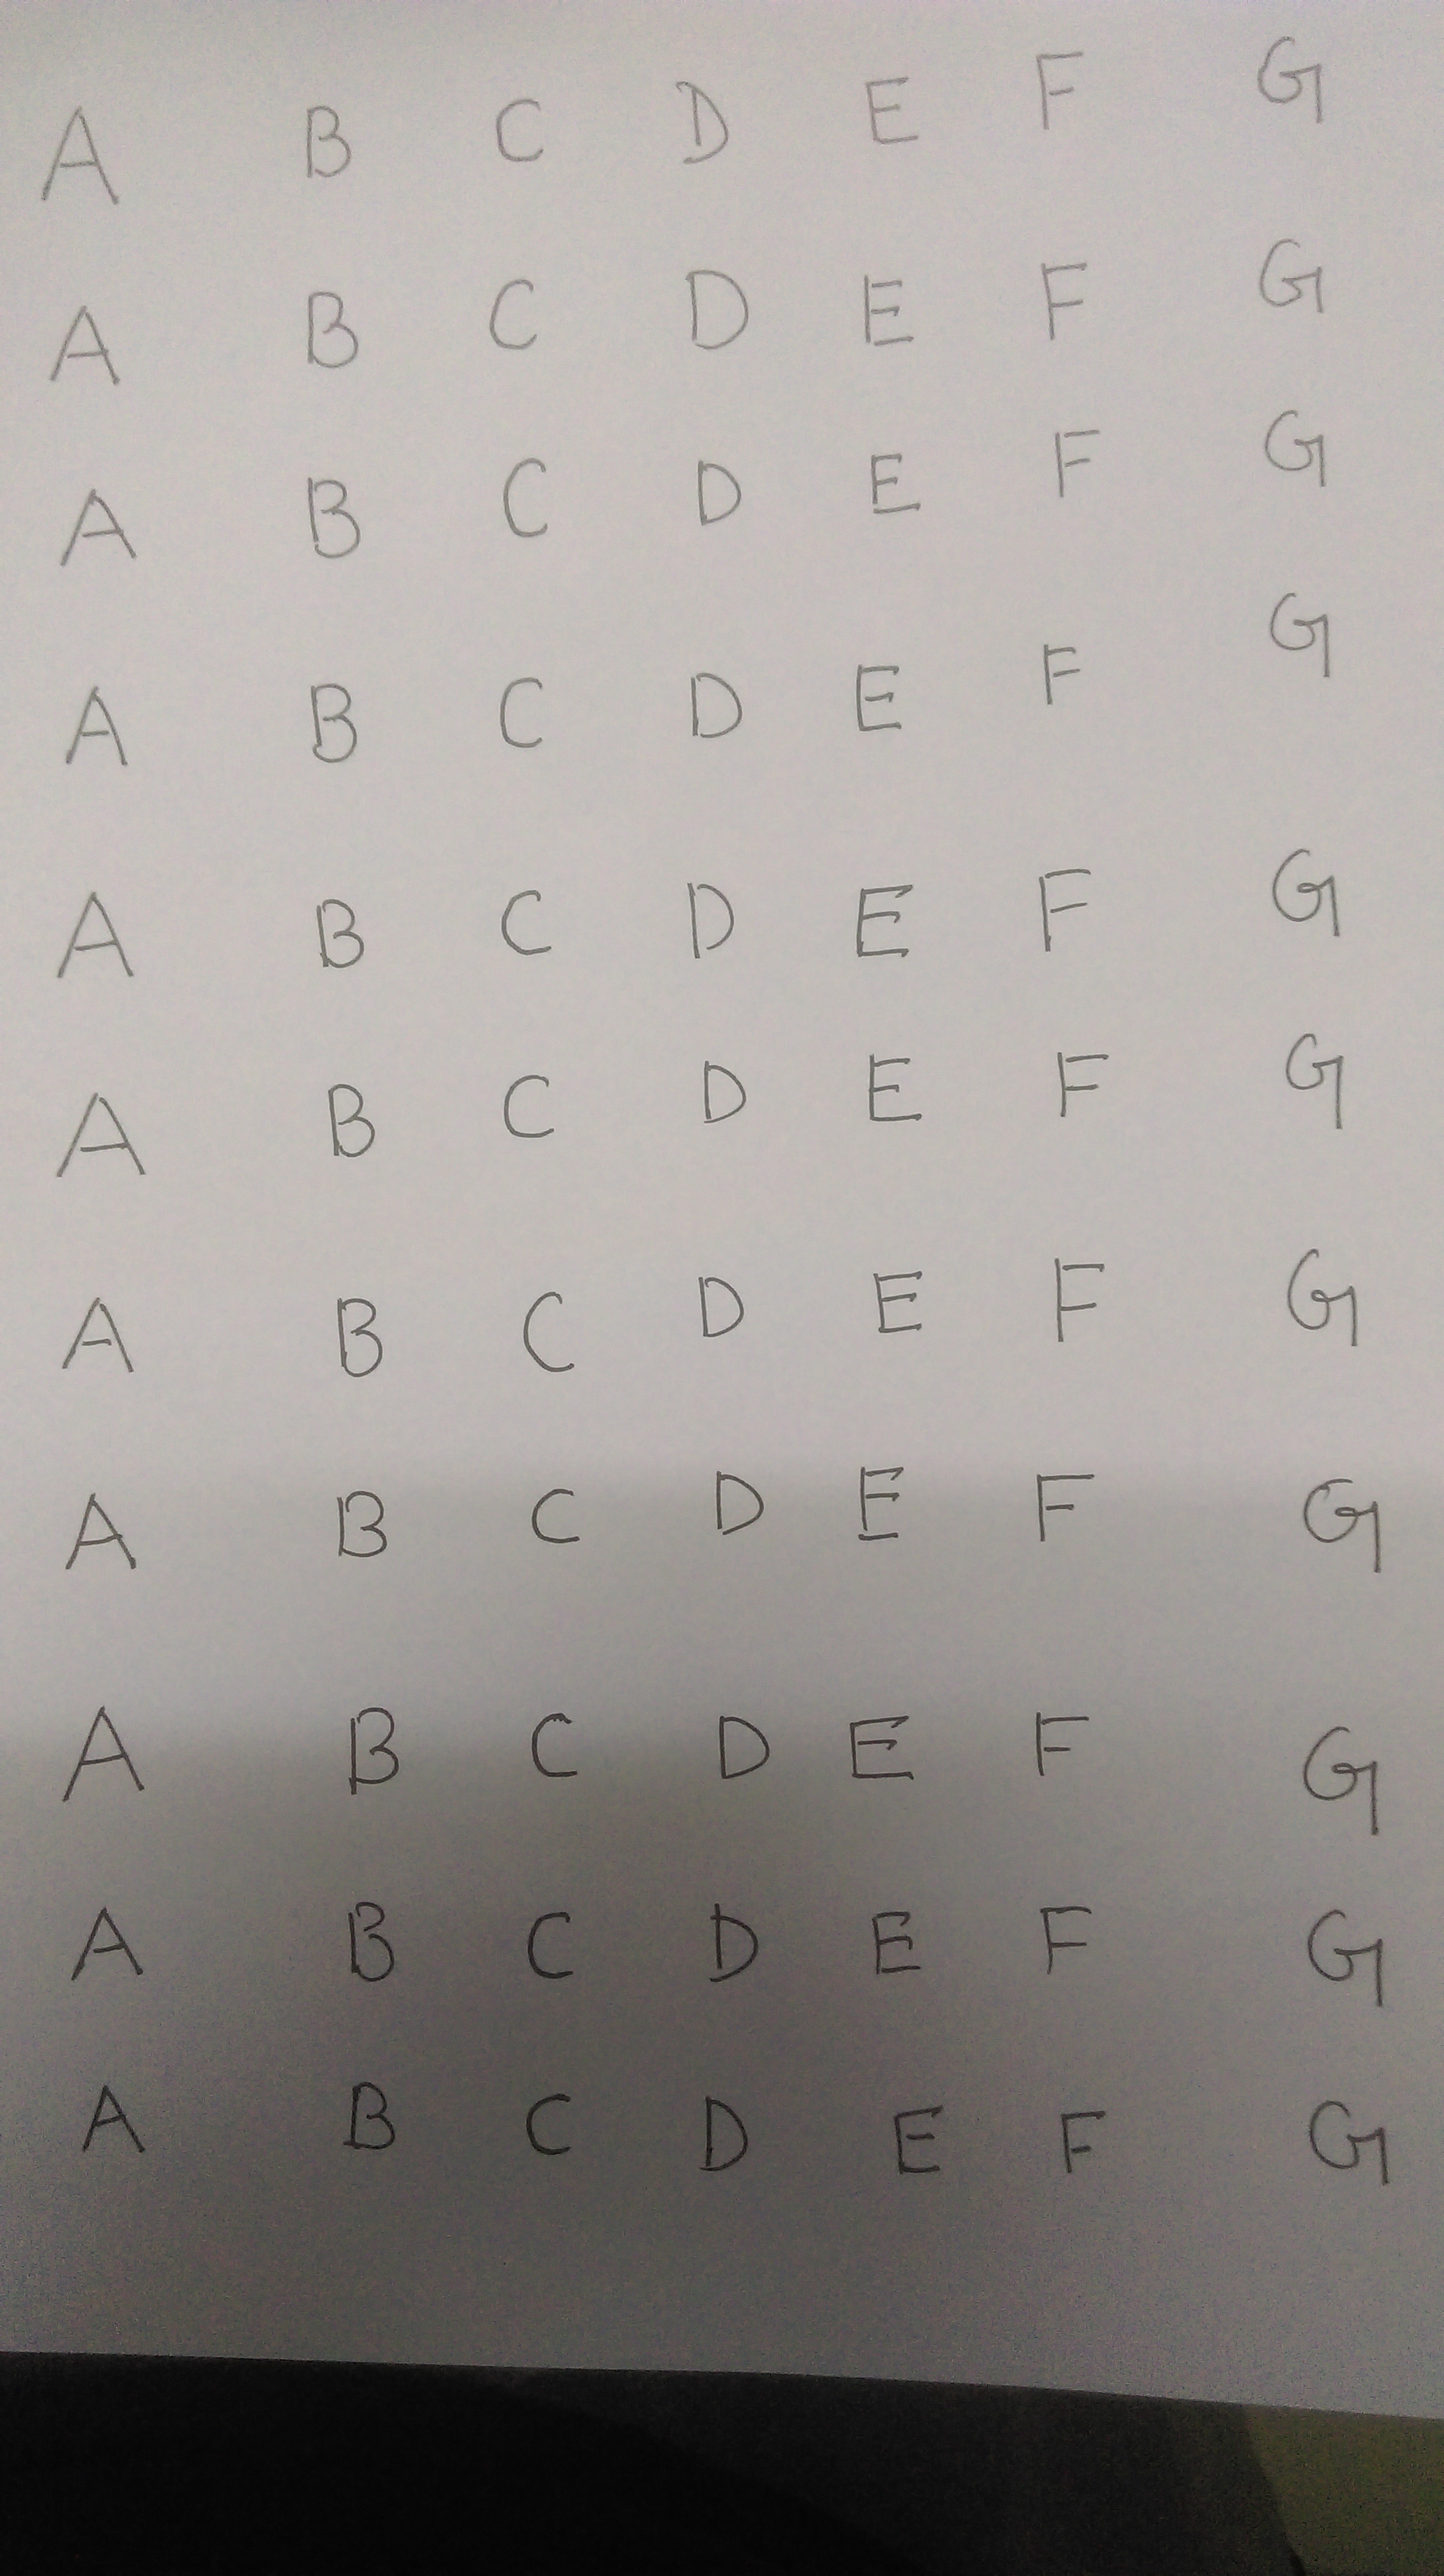 A B C D E F G
A B C D E F G
A B C D E F G
A B C D E F G
A B C D E F G
A B C D E F G
A B C D E F G
A B C D E F G
A B C D E F G
A B C D E F G
A B C D E F G